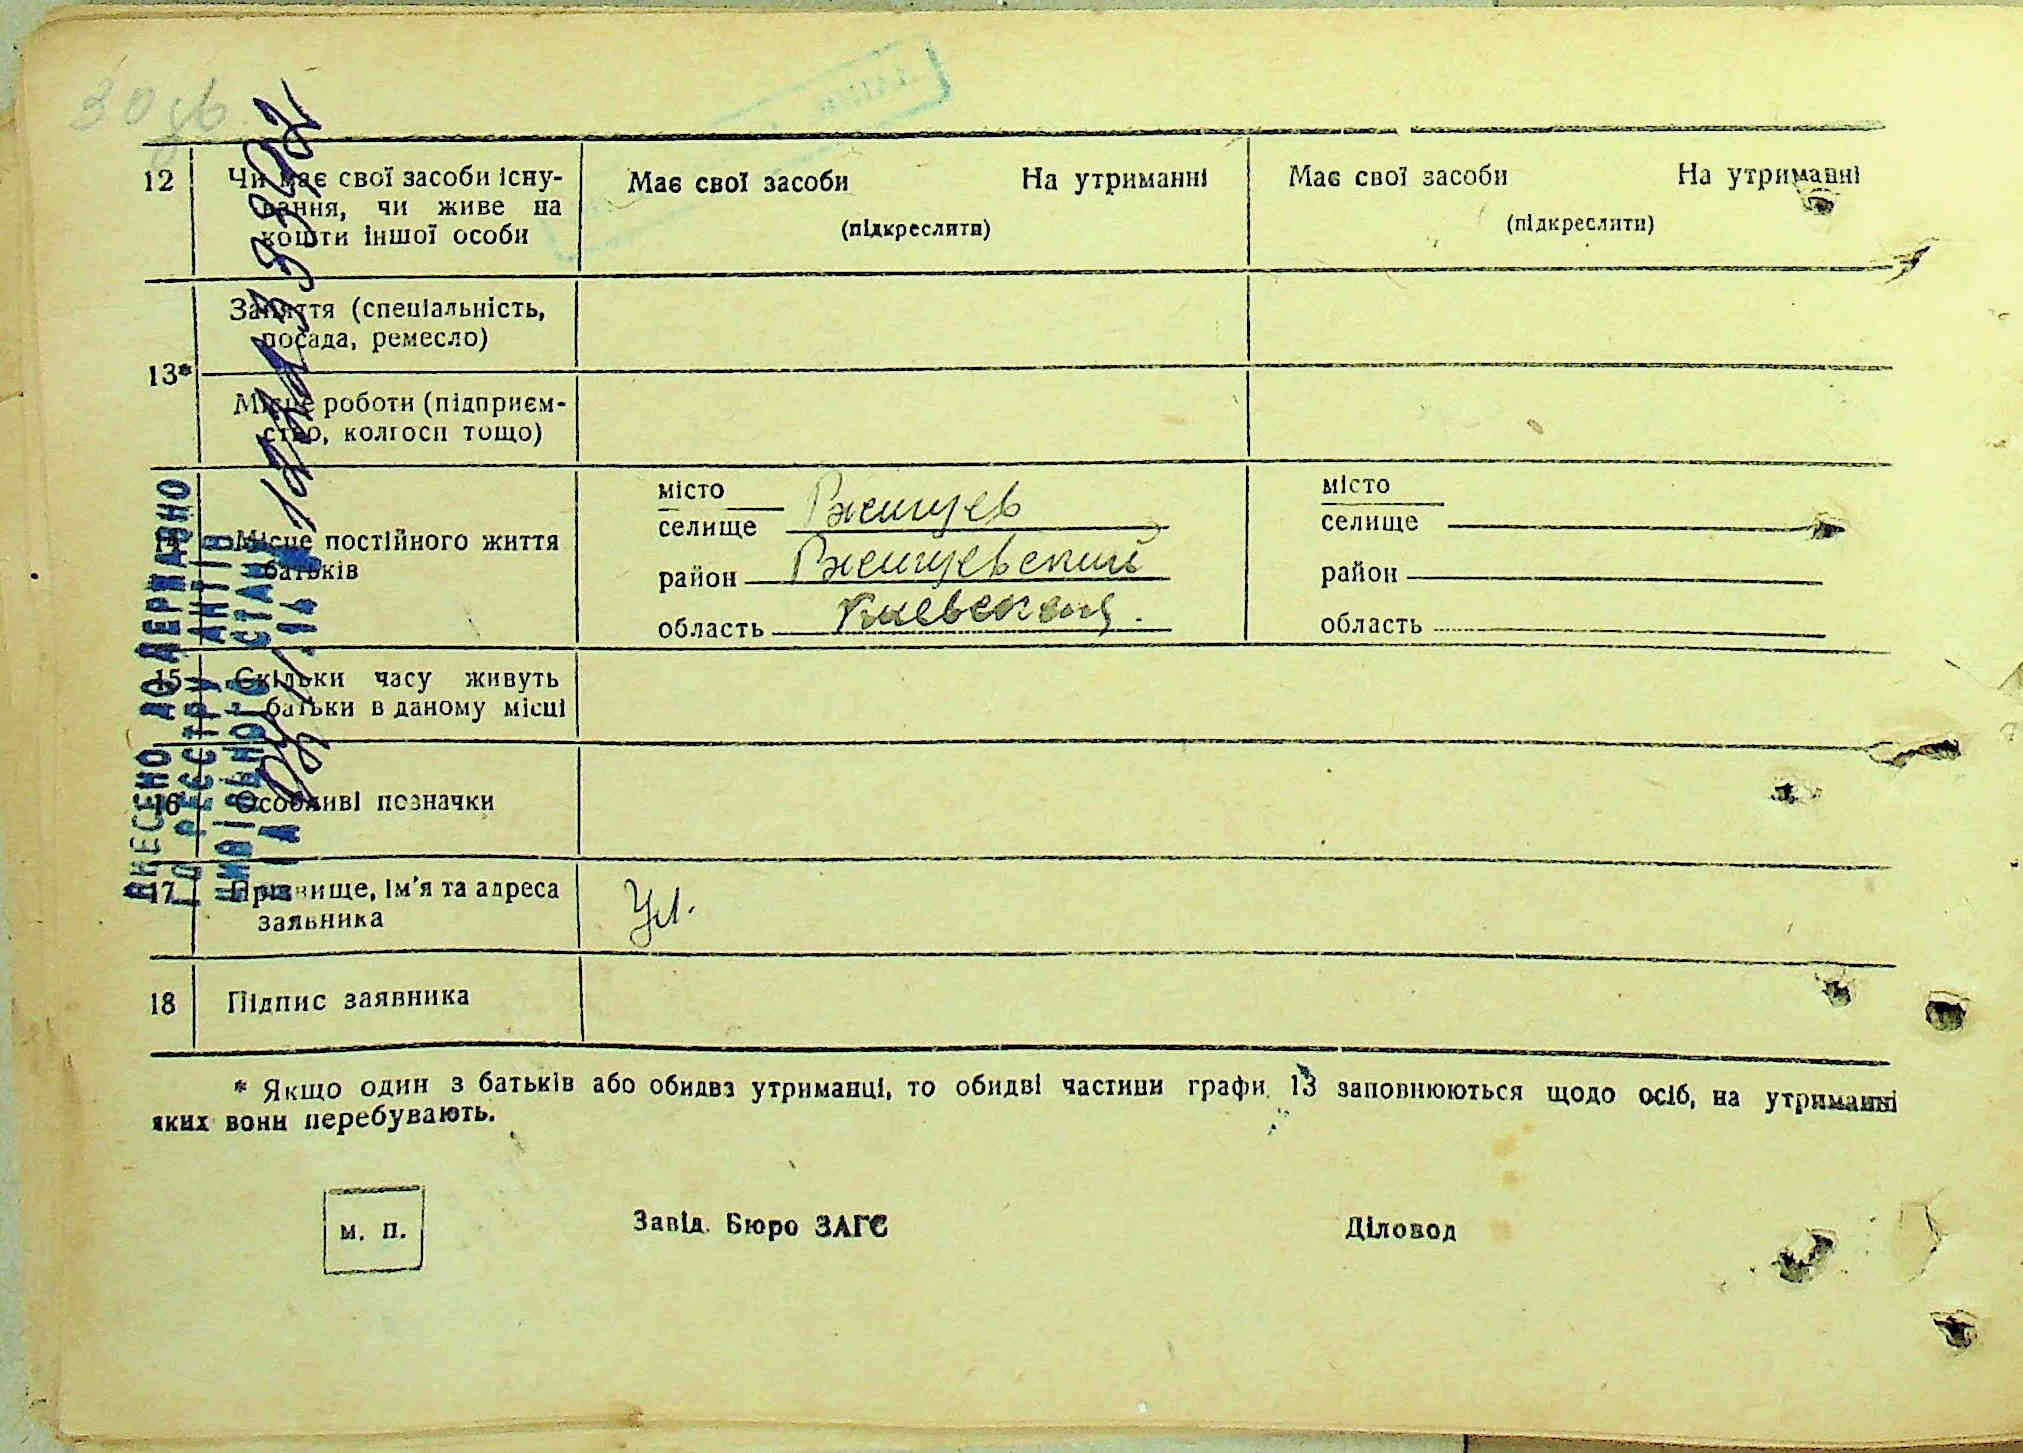 30 зв
12 Чи має свої засоби існу-
вання, чи живе на
кошти іншої особи
Має свої засоби На утриманні
(підкреслити)
Має свої засоби На утриманні
(підкреслити)
13*
Заняття (спеціальність,
посада, ремесло)
Місце роботи (підприєм-
ство, колгосп тощо)
14 Місце постійного життя
батьків
місто
селище Ржищев
район Ржищевский
область Киевская.
місто
селище
район
область
15 Скільки часу живуть
батьки в даному місці
16 Особливі позначки
17 Прізвище, ім’я та адреса
заявника
Ул.
18 Підпис заявника
* Якщо один з батьків або обидва утриманці, то обидві частини графи 13 заповнюються щодо осіб, на утриманні
яких вони перебувають.
м. п.
Завід. Бюро ЗАГС
Діловод
ВНЕСЕНО ДО ДЕРЖАВНО
ГО РЕЄСТРУ АКТІВ
ЦИВІЛЬНОГО СТАНУ
ЗА